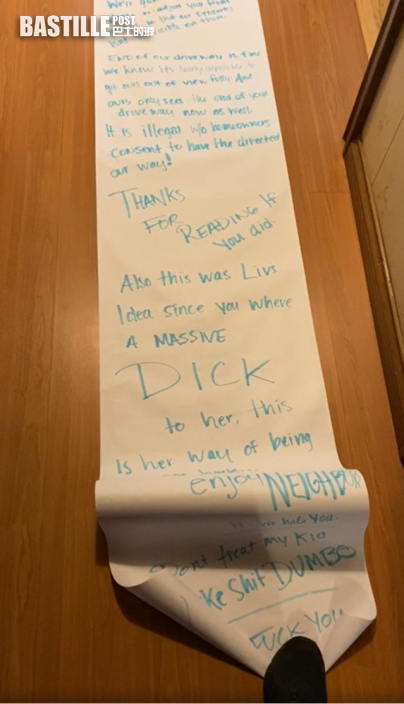 BASTILLE POST
巴士的報
We're
your
that our
on them
End of our driveway is fine
we know its nearly impossible to
get ours out of view fully. And
ours only sees the end of your
driveway now as well.
It is illegal w/o homeowners
consent to have the directed
our way!
THANKS
FOR
READING If
you did
Also this was Livs
Idea since you where
A MASSIVE
DICK
to her, this
Is her way of being
enjoy NEIGHBOUR
hate you.
Dont treat my Kid
ke Shit DUMBO
FUCK YOU